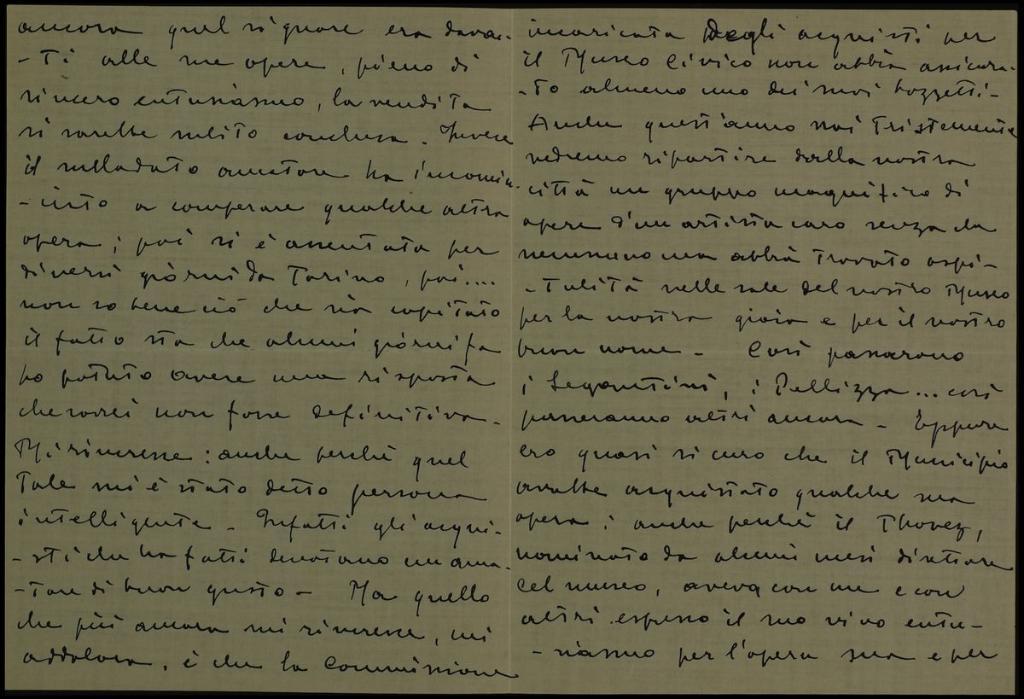 ancora quel signore era davan-
-ti alle sue opere, pieno di
sincero entusiasmo, la vendita
si sarebbe subito conclusa. Invece
il sullodato amatore ha incomin-
-ciato a comperare qualche altra
opera; poi si è assentato per
diversi giorni da Torino, poi...
non so bene ciò che sia capitato
il fatto sta che alcuni giorni fa
ho potuto avere una risposta
che vorrei non fosse definitiva.
Mi rincresce: anche perchè quel
tale mi è stato detto persona
intelligente - Infatti gli acqui-
-sti che ha fatti denotano un ama-
-tore di buon gusto - Ma quello
che più ancora mi rincresce, mi
addolora, è che la Commissione
incaricata degli acquisti per
il Museo Civico non abbia assicura-
-to almeno uno dei suoi bozzetti -
Anche quest'anno noi tristemente
vedremo ripartire dalla nostra
città un gruppo magnifico di
opere d'un artista caro senza che
nemmeno una abbia trovato ospi-
-talità nelle sale del nostro Museo
per la nostra gioia e per il nostro
buon nome - Così passarono
i Segantini, i Pellizza... così
passeranno altri ancora - Eppure
ero quasi sicuro che il Municipio
avrebbe acquistato qualche sua
opera; anche perchè il Thovez,
nominato da alcuni mesi direttore
del museo, aveva con me e con
altri espresso il suo vivo entu-
-siasmo per l'opera sua e per